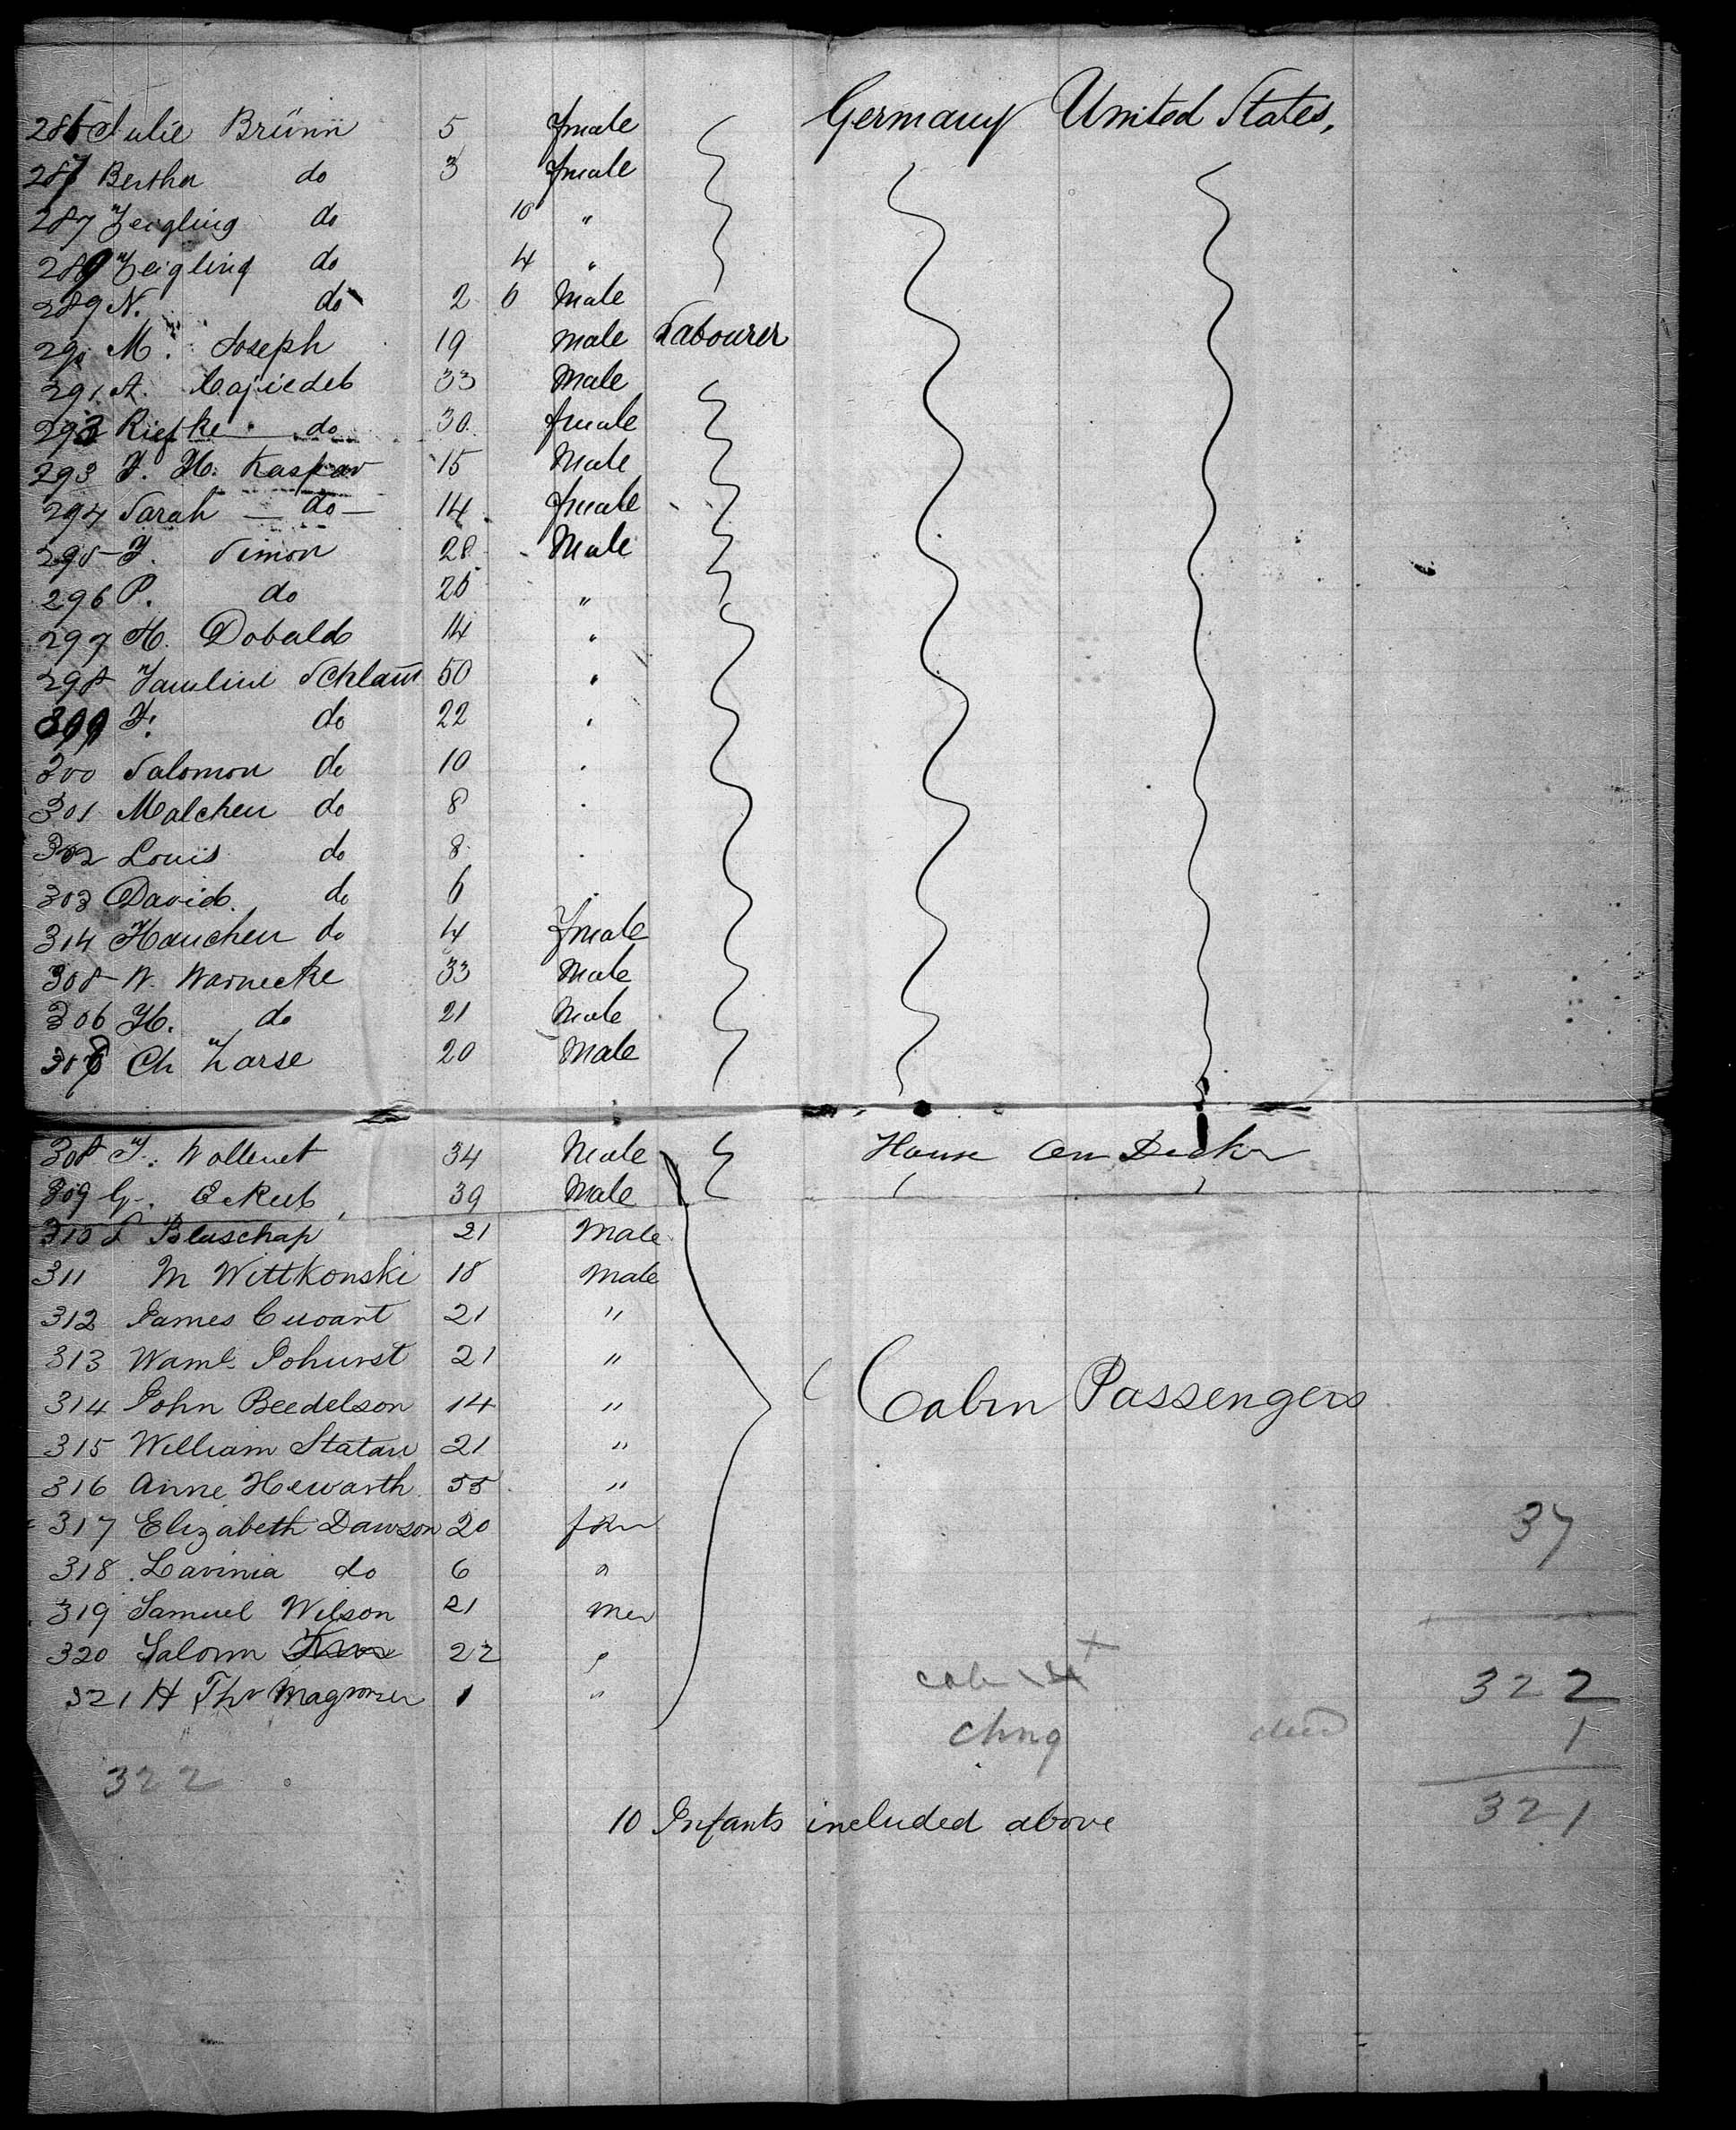 Germany United States,
285 Julie Brünn 5 female
287 Bertha do 3 female
287 Zeigling do 10 "
289 Zeigling do 4 "
289 N. do 2 6 Male
290 M. Joseph 19 male Labourer
291 A. 33 Male
293 Riefke do 30 female
293 J. H. Kaspar 15 Male
294 Sarah — do — 14 female
295 J. Simon 28 Male
296 P. do 26 "
297 H. Dobald 14 "
298 Schlam̄ 50 "
299 J. do 22 "
300 Salomon do 10 "
301 Malchen do 8 "
302 Louis do 8 "
303 David do 6 "
314 Hanchen do 4 female
305 W. Warnecke 33 Male
306 H. do 21 Male
308 Ch Zarse 20 Male
308 J. Wollenet 34 Male House on Deck
309 G. 39 Male
310 Bluschap 21 Male
311 M Wittkonski 18 male
312 James Cuoant 21 "
313 Waml. Johurst 21 "
314 John Beedelson 14 " Cabin Passengers
315 William Statan 21 "
316 Anne Hewarth 55 "
317 Elizabeth Dawson 20 37
318 Lavinia do 6 "
319 Samuel Wilson 21
320 Salomn 22 "
321 H Thr 1 "
322
1
chng died
322
321
10 Infants included above